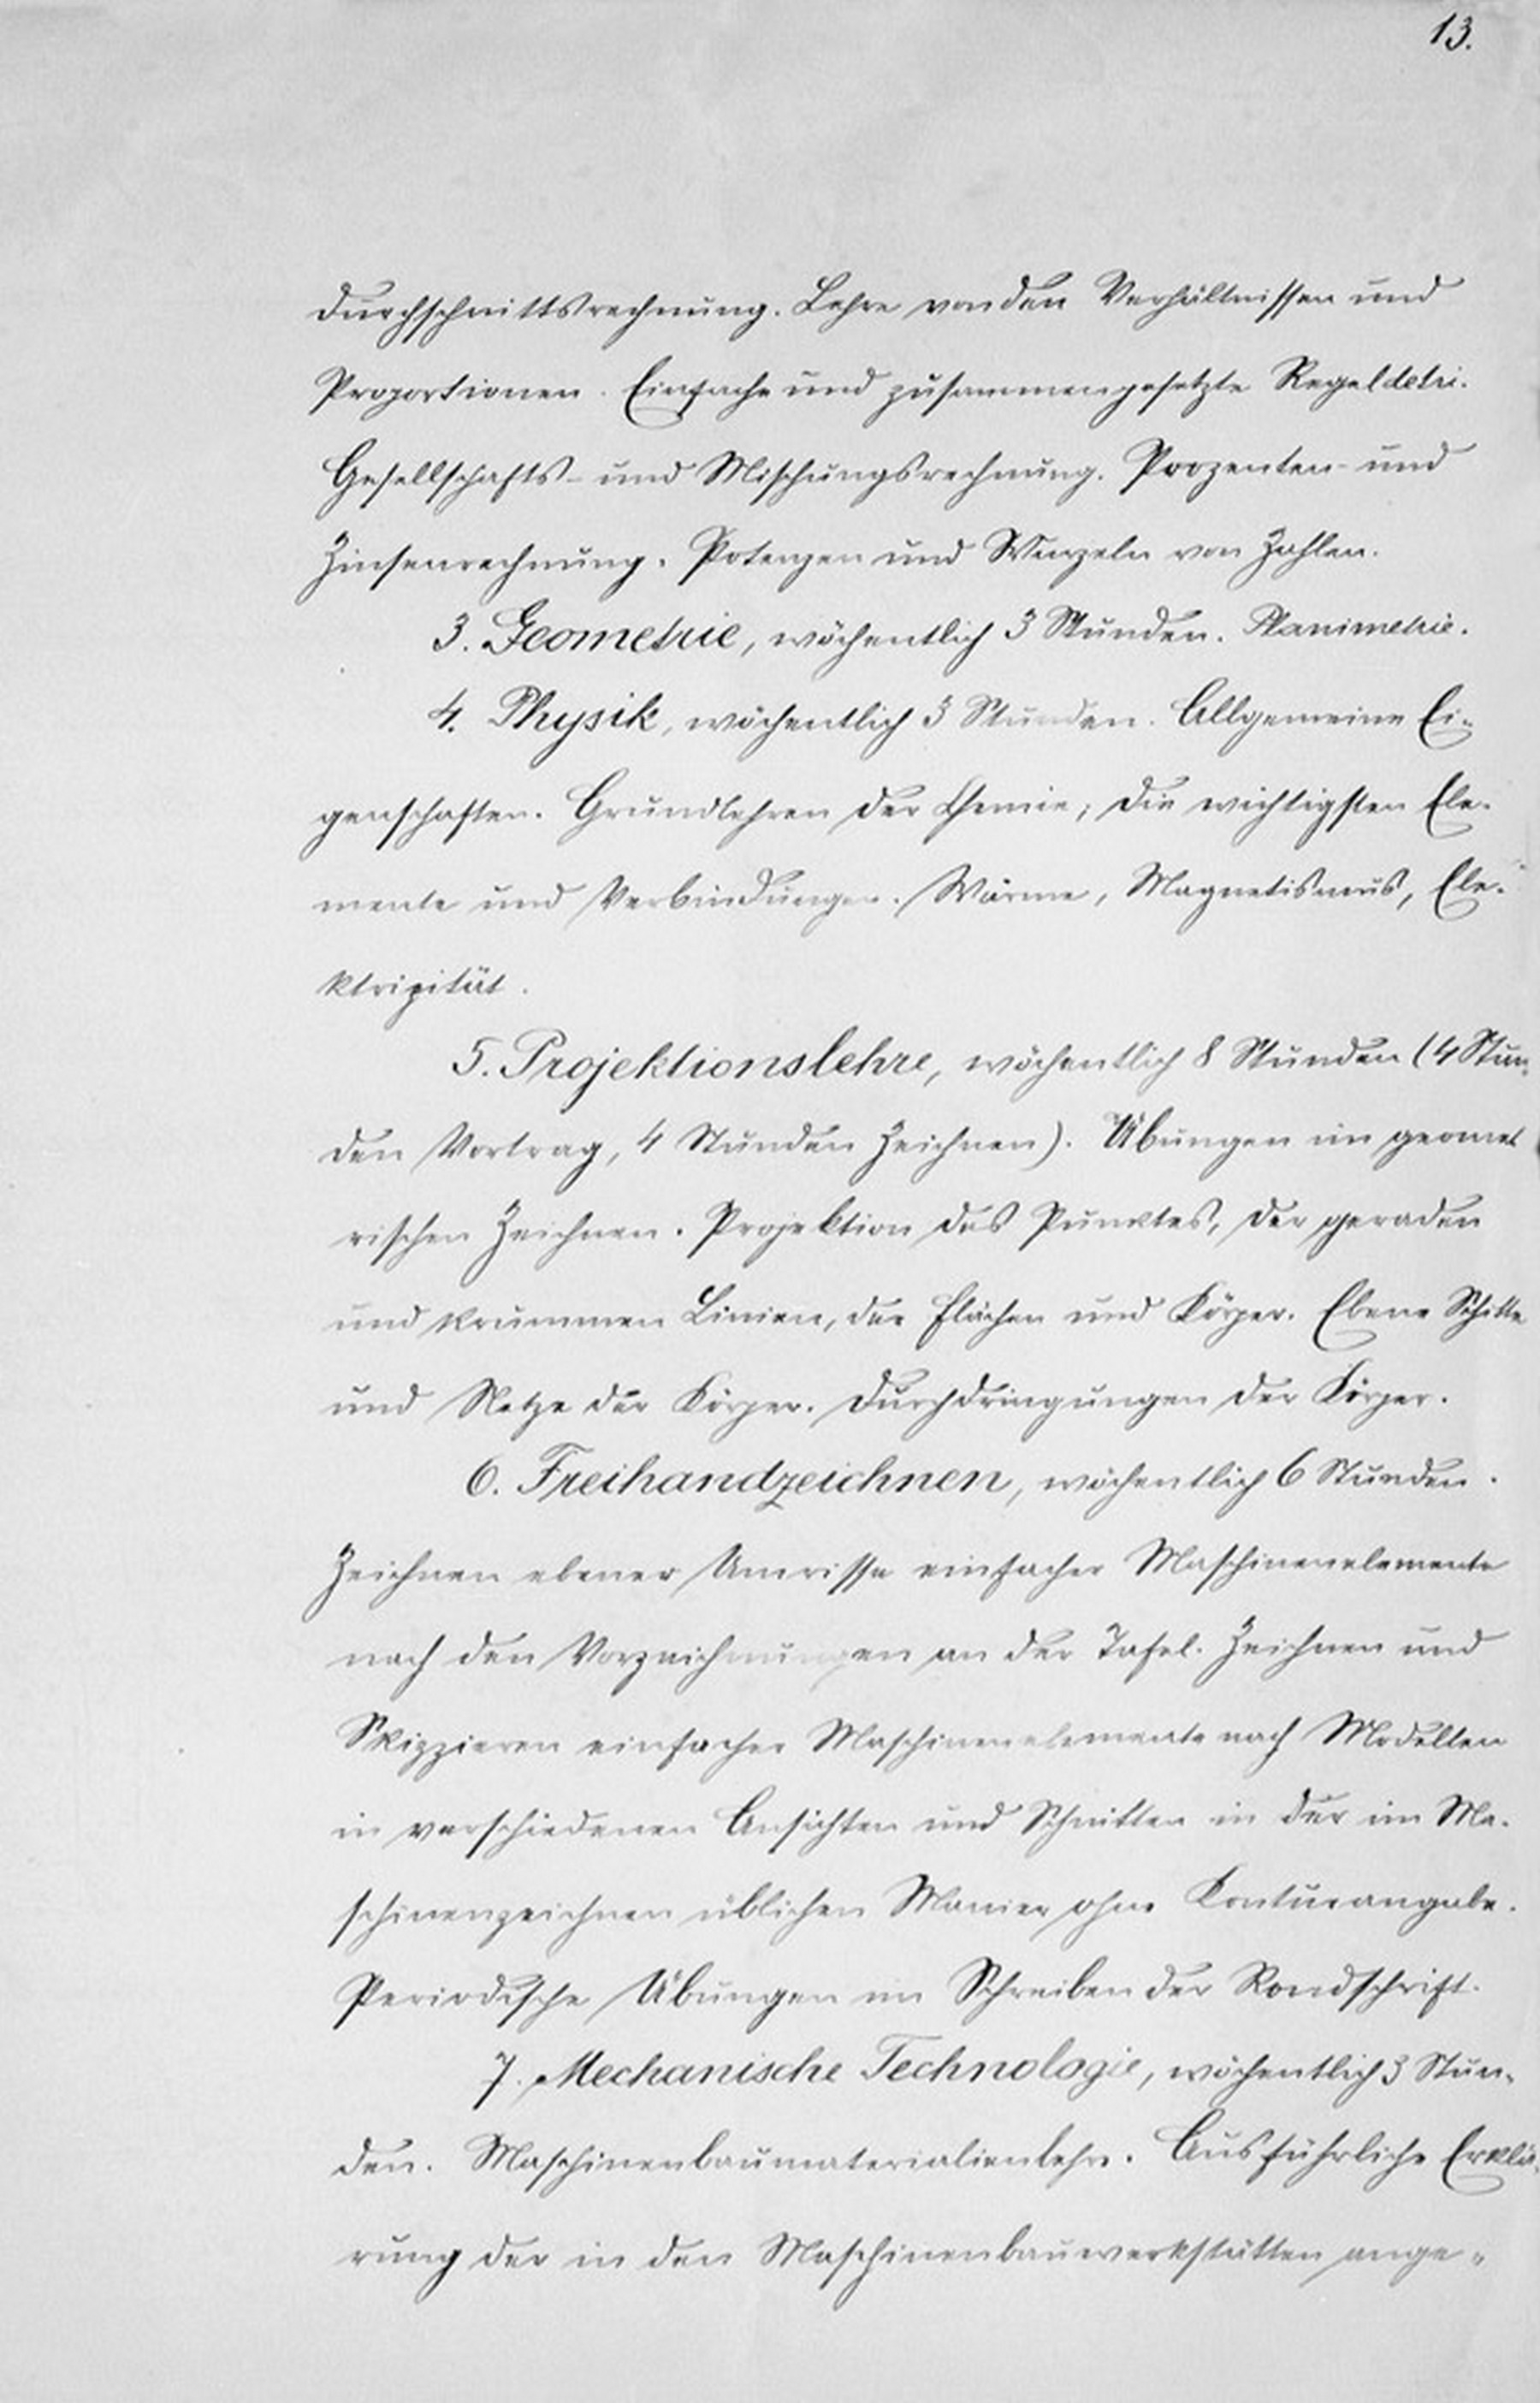 13.
Durchschnittsrechnung. Lehre von den Verhältnissen und
Proportionen. Einfache und zusammengesetzte Regeldetri.
Gesellschafts- und Mischungsrechnung. Prozenten- und
Zinsenrechnung. Potenzen und Wurzeln von Zahlen.
3. Geometrie, wöchentlich 3 Stunden. Planimetrie.
4. Physik, wöchentlich 3 Stunden. Allgemeine Ei-
genschaften. Grundlehren der Chemie; die wichtigsten Ele-
mente und Verbindungen. Wärme, Magnetismus, Ele-
ktrizität.
5. Projektionslehre, wöchentlich 8 Stunden (4 Stun-
den Vortrag, 4 Stunden Zeichnen). Übungen im geomet
rischen Zeichnen. Projektion des Punktes, der geraden
und krummen Linien, der Flächen und Körper. Ebene Schitte
und Netze der Körper. Durchdringungen der Körper.
6. Freihandzeichnen, wöchentlich 6 Stunden.
Zeichnen ebener Umrisse einfacher Maschinenelemente
nach den Vorzeichnungen an der Tafel. Zeichnen und
Skizzieren einfacher Maschinenelemente nach Modellen
in verschiedenen Ansichten und Schnitten in der im Ma-
schinenzeichnen üblichen Manier ohne Konturangabe.
Periodische Übungen im Schreiben der Rondschrift.
7. Mechanische Technologie, wöchentlich 3 Stun-
den. Maschinenbaumaterialienlehre. Ausführliche Erklä-
rung der in den Maschinenbauwerkstätten ange-